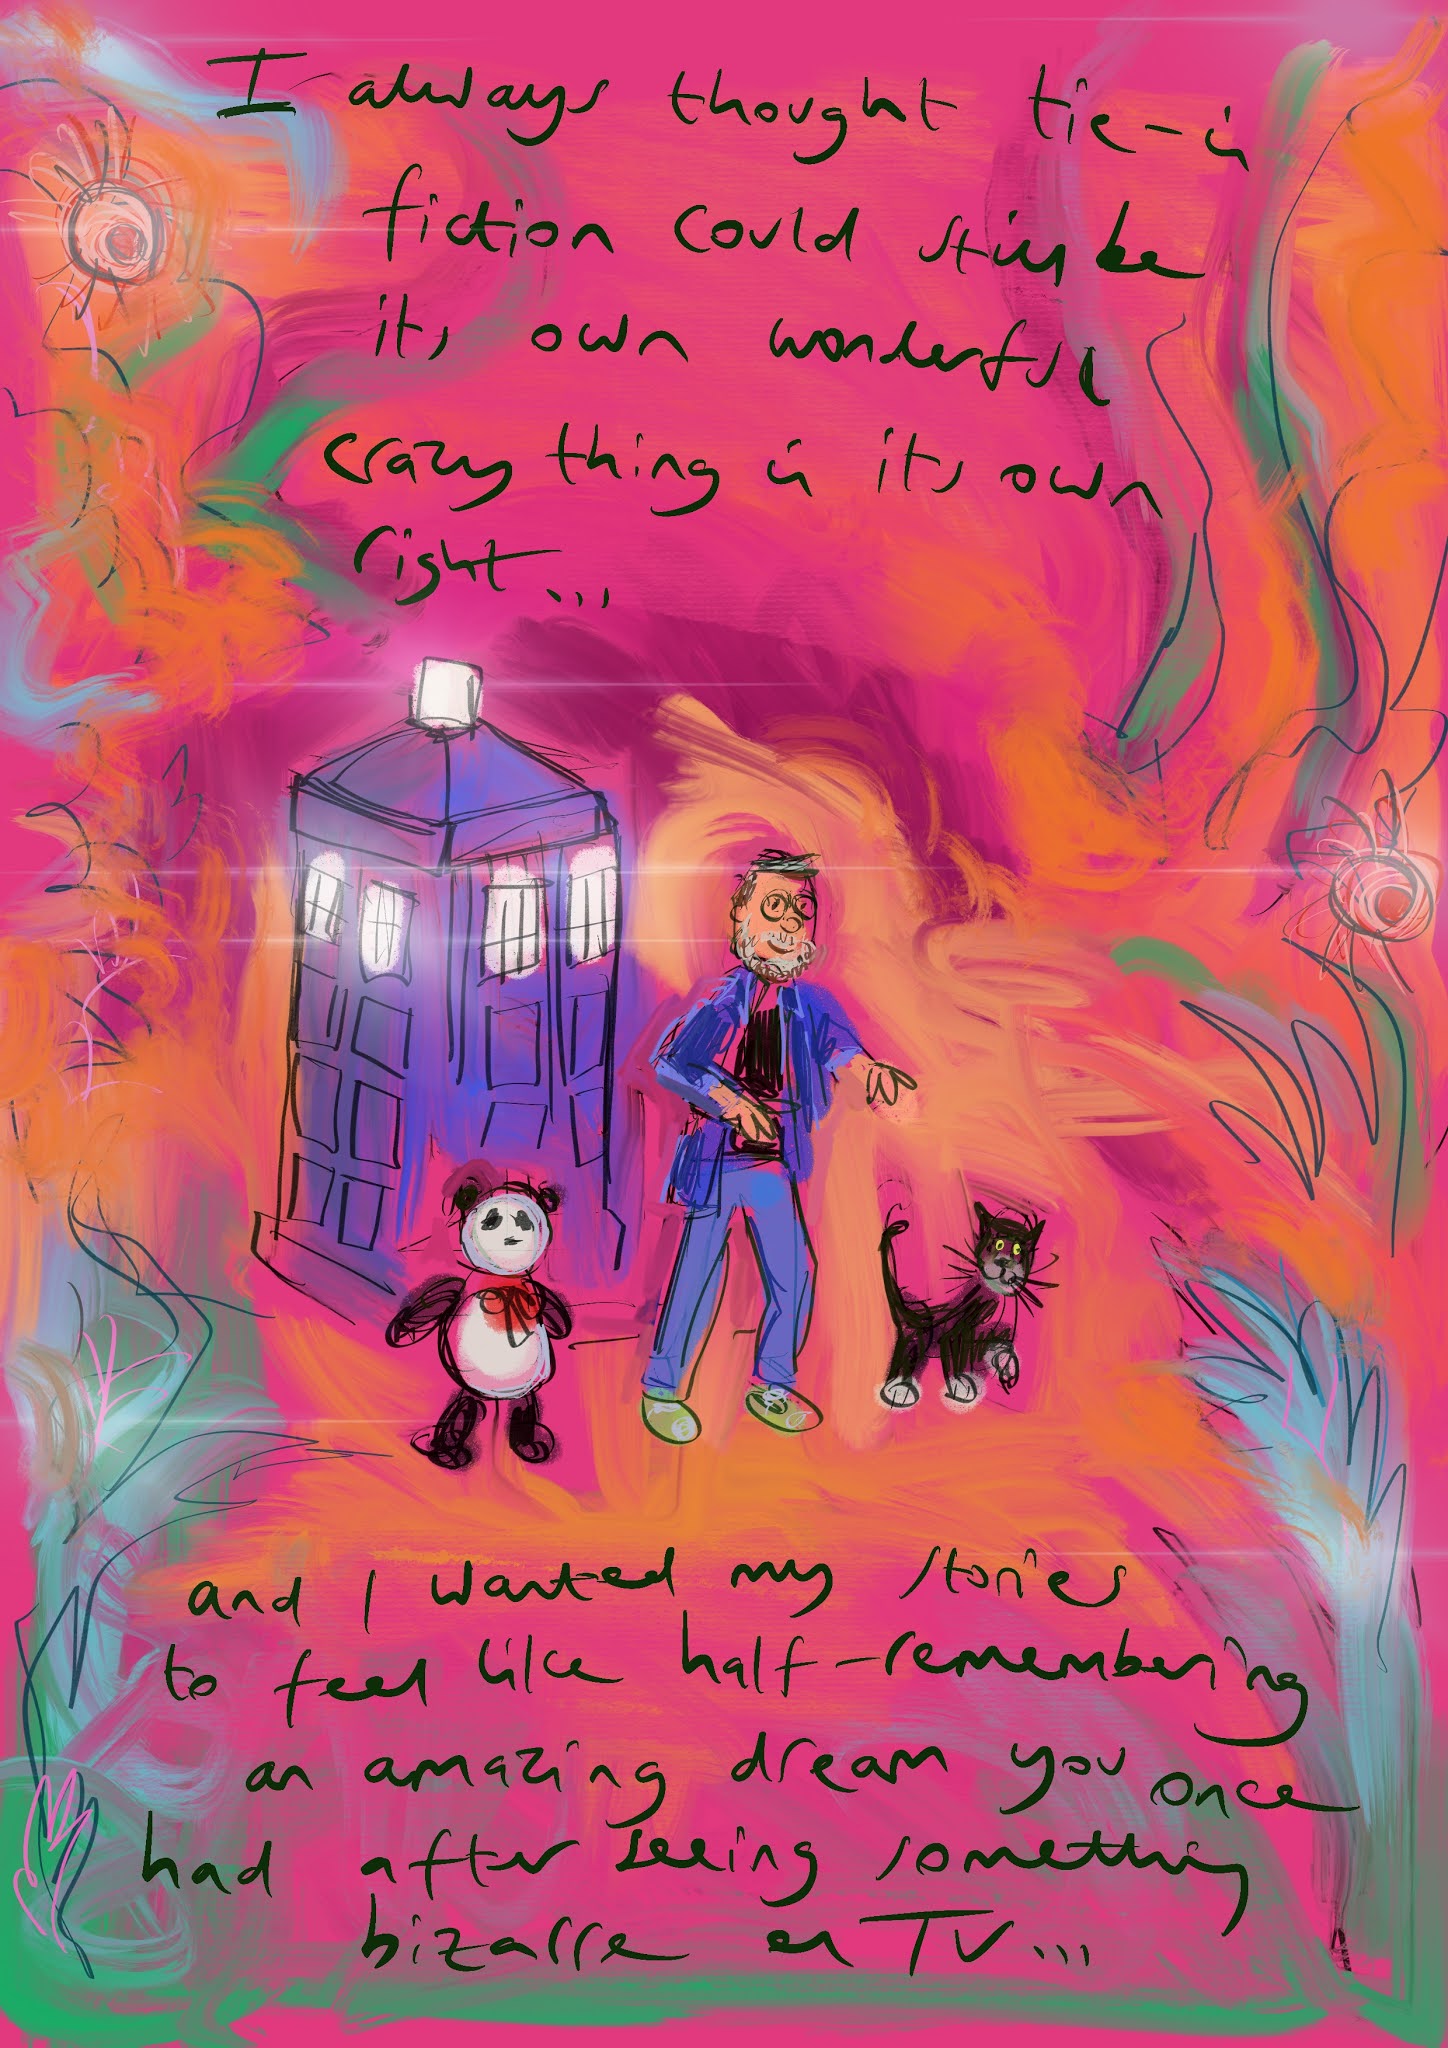 I always thought tie-in
fiction could still be
its own wonderful
crazy thing in its own
right...
and I wanted my stories
to feel like half-remembering
an amazing dream you once
had after seeing something
bizarre on TV...